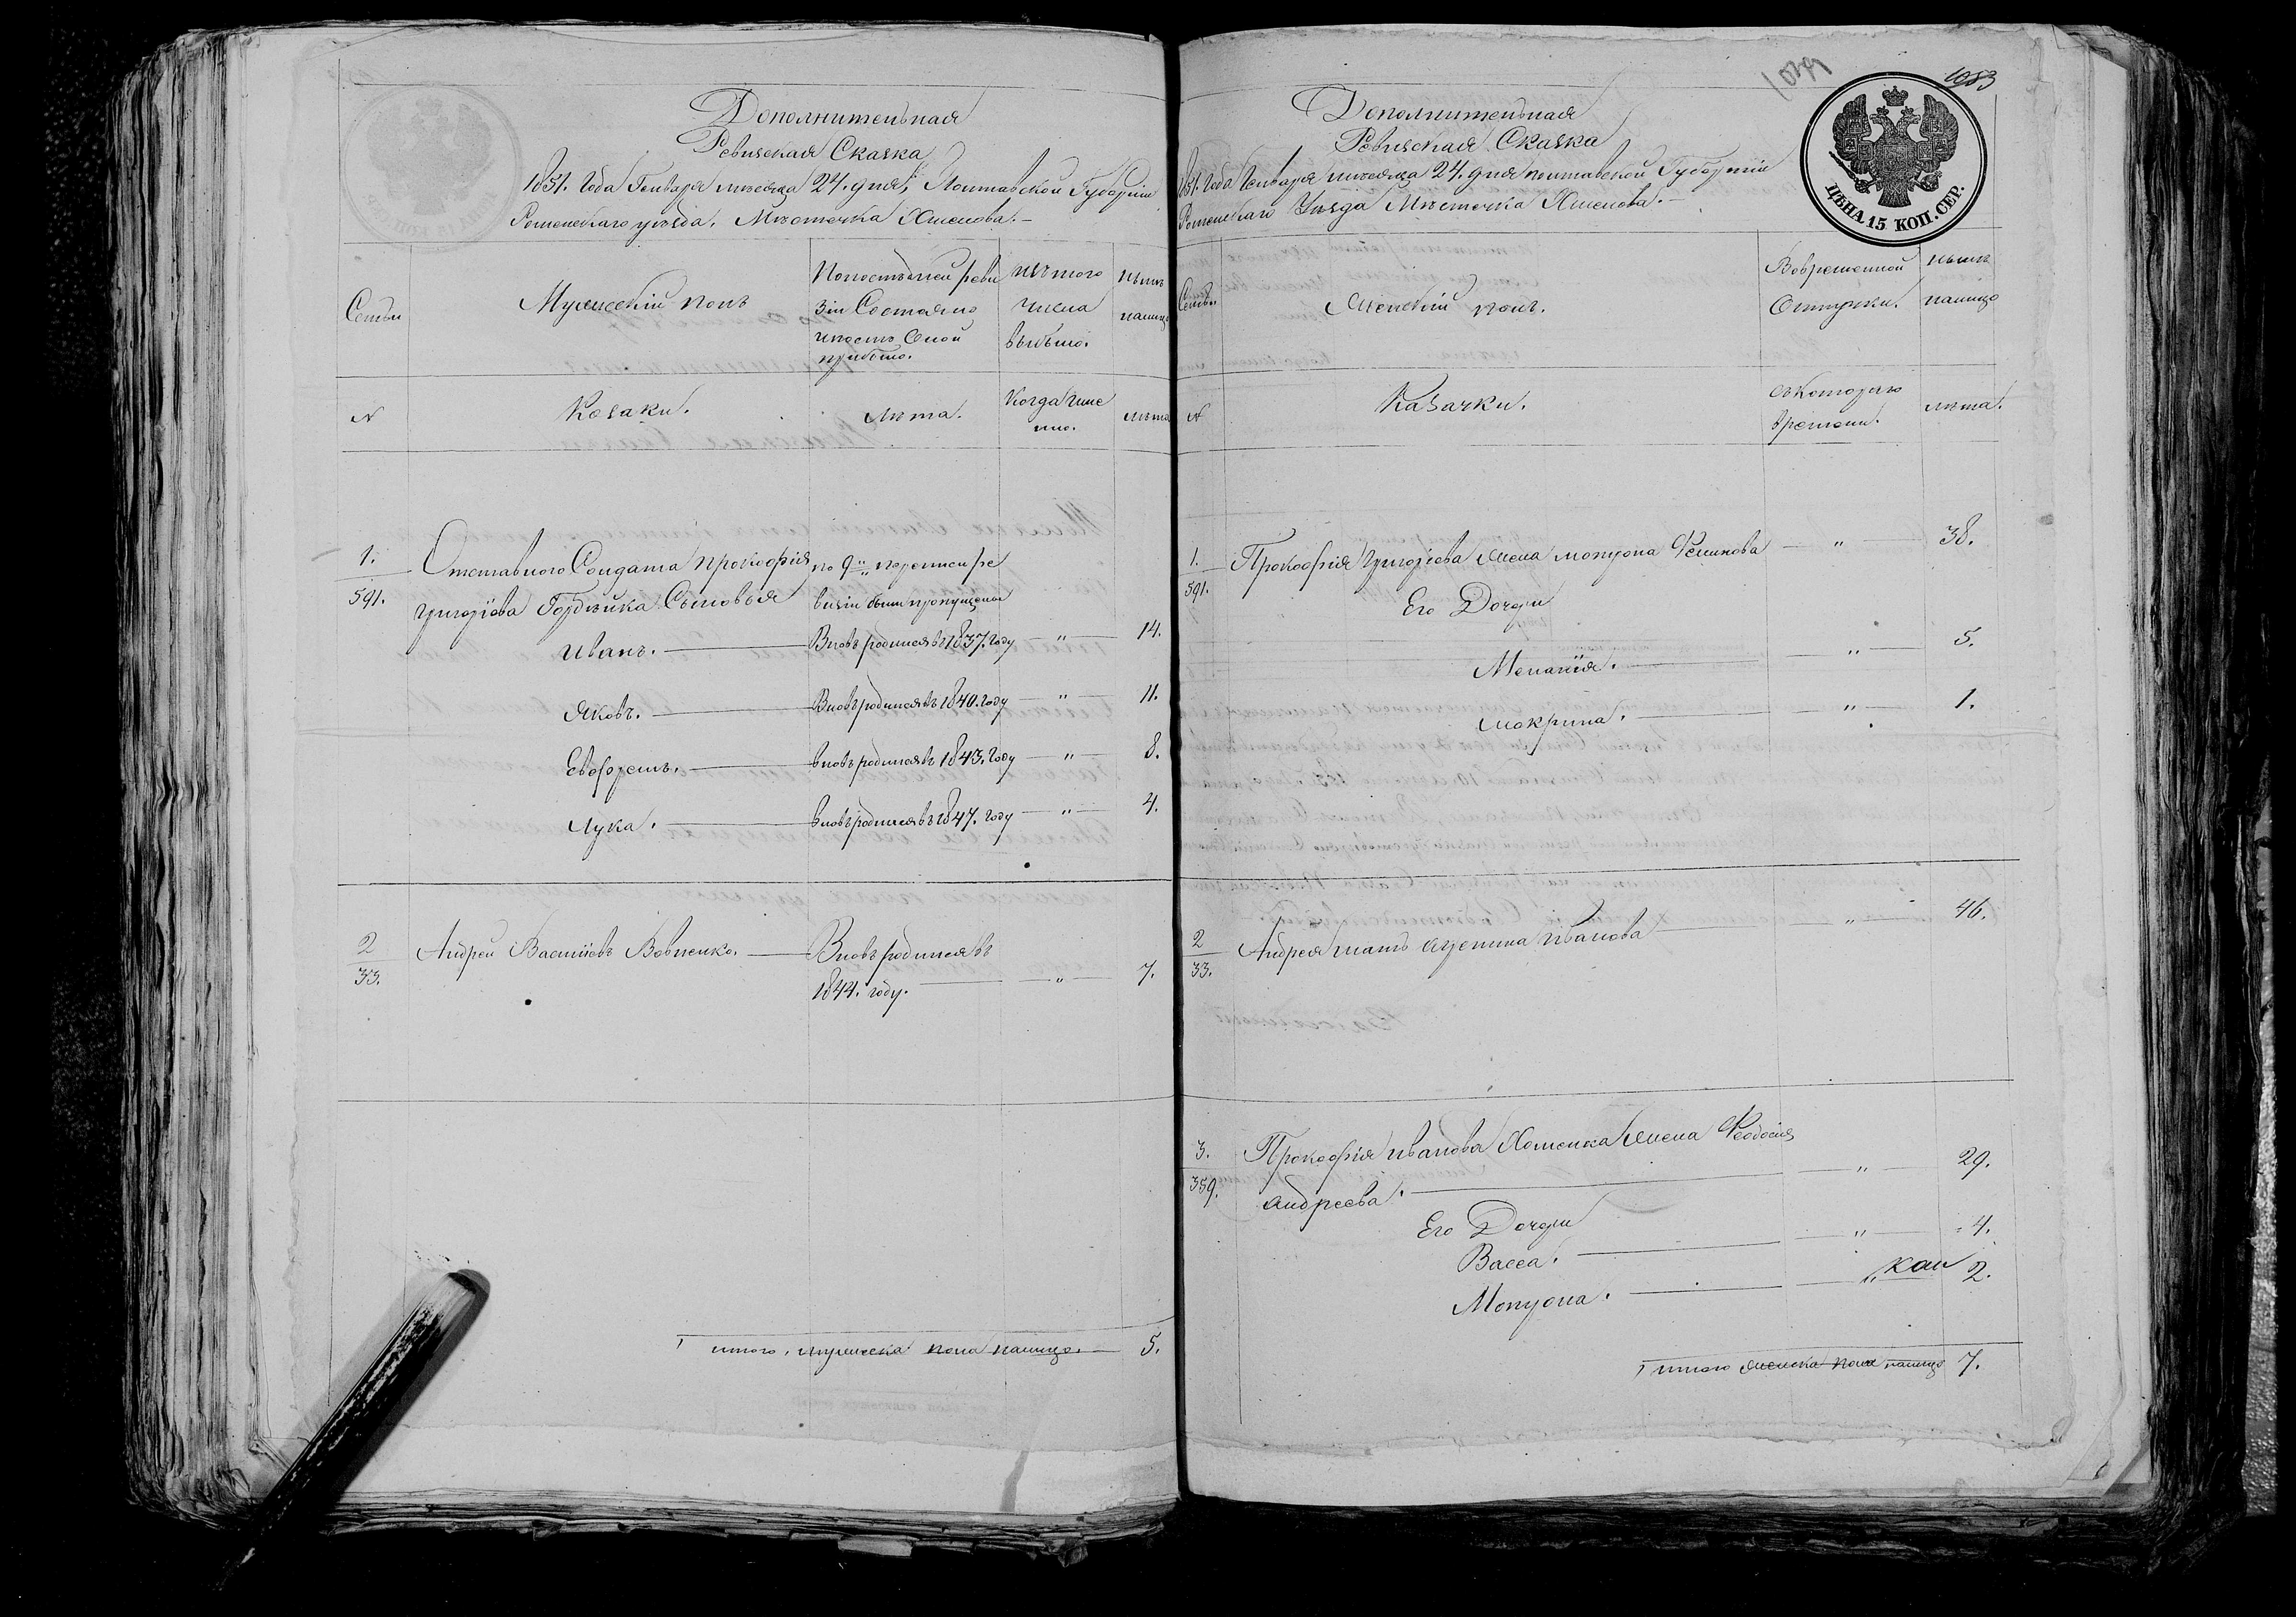 Дополнительная
Ревизская Сказка
1851. Года Генваря месяца 24. дня, Полтавской Губерніи
Роменскаго уезда. Местечка Хмелова.
Семьи
Мужескій полъ
Попоследней реви
зіи Состояло
ипосле Оной
прибыло.
изтого
числа
выбыло.
ныне
налицо
N
Козаки.
лета.
Когда имен
но.
лета
1.
591.
Отставного Солдата Прокофія
Григоріева Гордейка Сыновья
по 9й переписи ре
визіи были пропущены
Иванъ. Вновь родился въ 1837. году " 14.
Яковъ. Вновь родился въ 1840. году " 11.
Евфремъ. вновь родился въ 1843. году " 8.
Лука. вновь родился въ 1847. году " 4.
2
33.
Андрей Васильевъ Вовненко. Вновь родился въ
1844. году. " 7.
итого, мужеска пола налицо. 5.
1083
ЦѢНА 15 КОП. СЕР.
Дополнительная
Ревизская Сказка
1851. Года Генваря месяца 24. дня полтавской Губерніи
Роменскаго Уезда Местечка Хмелова.
Семьи
Женскій полъ.
Вовременной
Отлучки.
ныне
налицо
N
Казачки.
съКотораго
времени.
лета.
1.
591.
Прокофія Григоріева жена мотрона Феликова " 38.
Его Дочери
Меланія. " 5.
Мокрина. " 1.
2
33.
Андрея мать Агрепина Иванова " 46.
3.
359.
Прокофія иванова Хоменка жена Феодосія
андреева. " 29.
Его Дочери
Васса. " 4.
Мотрона. " 2.
итого женска пола налицо 7.